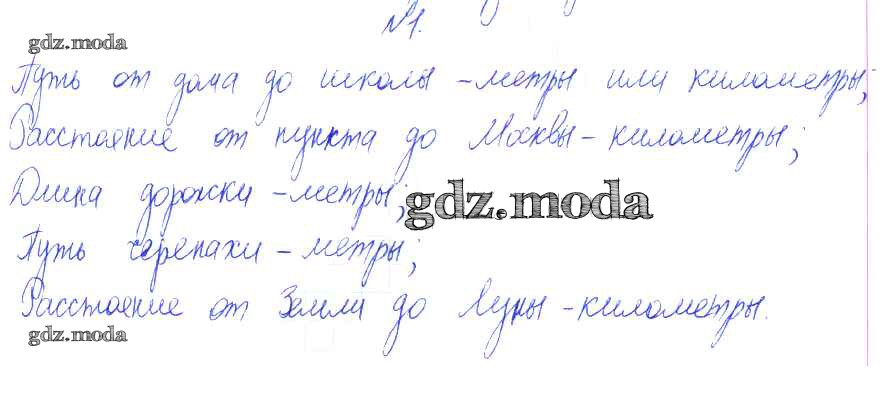 №1.
gdz.moda
Путь от дома до школы - метры или километры;
Расстояние от пункта до Москвы - километры;
Длина дорожки - метры;
gdz.moda
Путь черепахи - метры;
Расстояние от Земли до Луны - километры.
gdz.moda